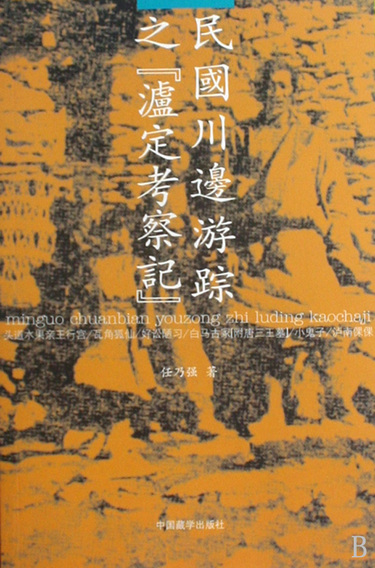 民國川邊游踪
之『瀘定考察記』
minguo chuanbian youzong zhi luding kaochaji
头道水果亲王行宫/花角狐仙/好讼陋习/白马古冢[附唐三王墓]/小鬼子/泸南倮倮
任乃强 著
中国藏学出版社
B